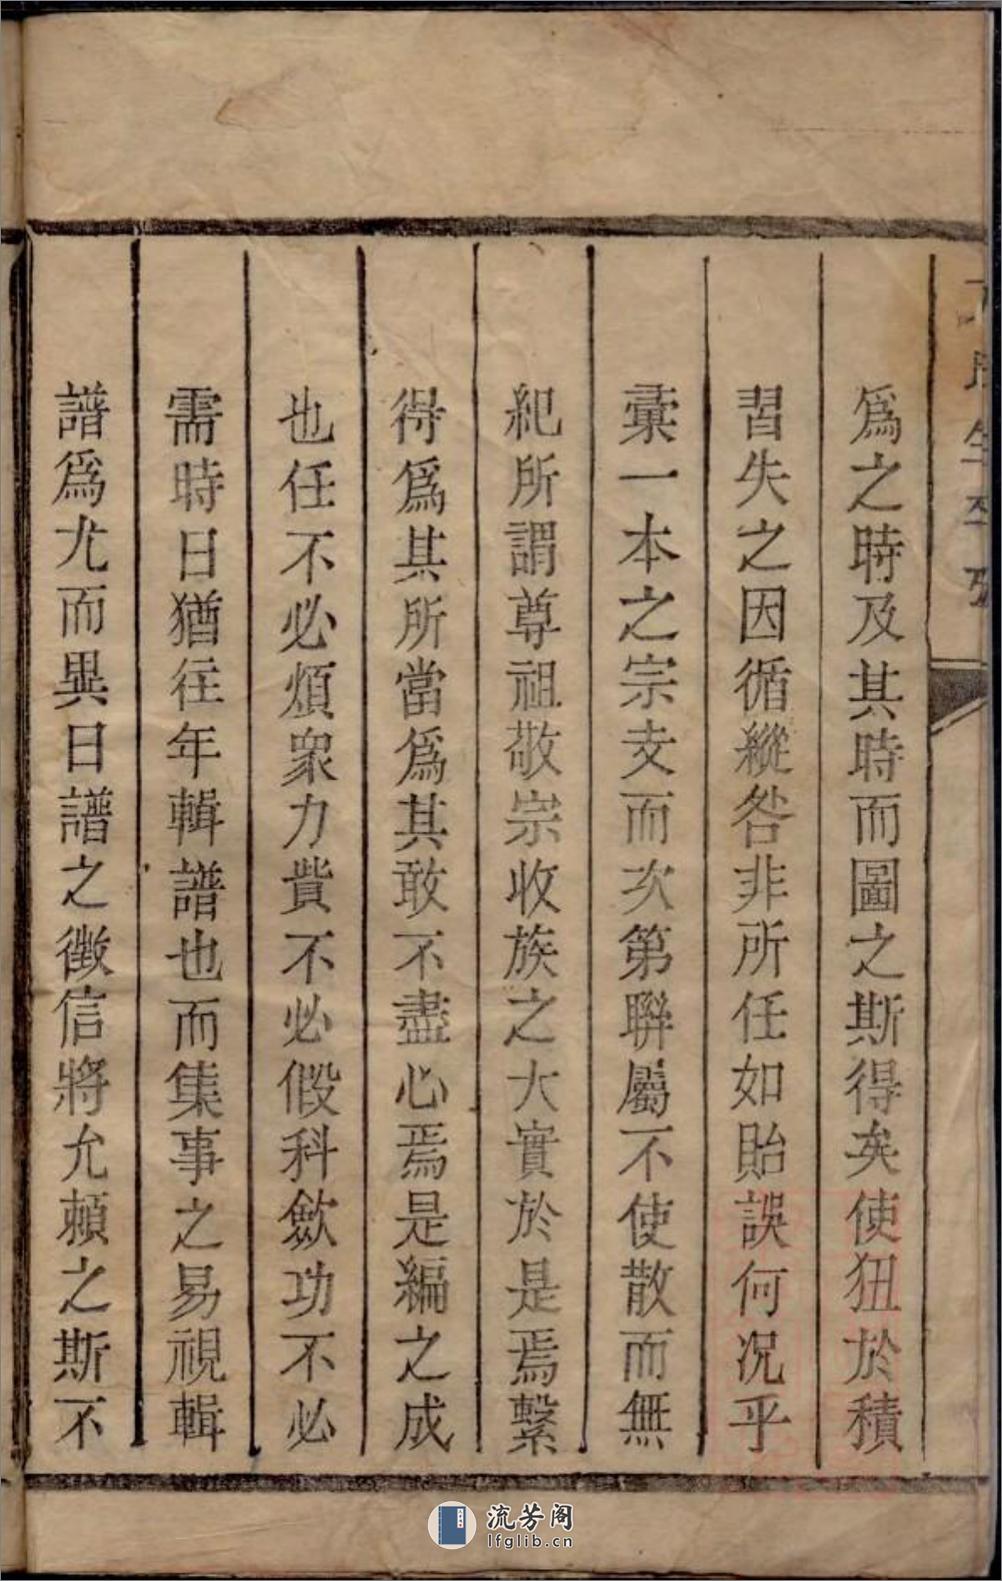 爲之時及其時而圖之斯得矣使狃於積
習失之因循縱咎非所任如貽誤何况乎
彙一本之宗支而次第聯屬不使散而無
紀所謂尊祖敬宗收族之大實於是焉繫
得爲其所當爲其敢不盡心焉是編之成
也任不必煩衆力貲不必假科斂功不必
需時日猶往年輯譜也而集事之易視輯
譜爲尤而異日譜之徵信將允賴之斯不
流芳阁
lfglib.cn